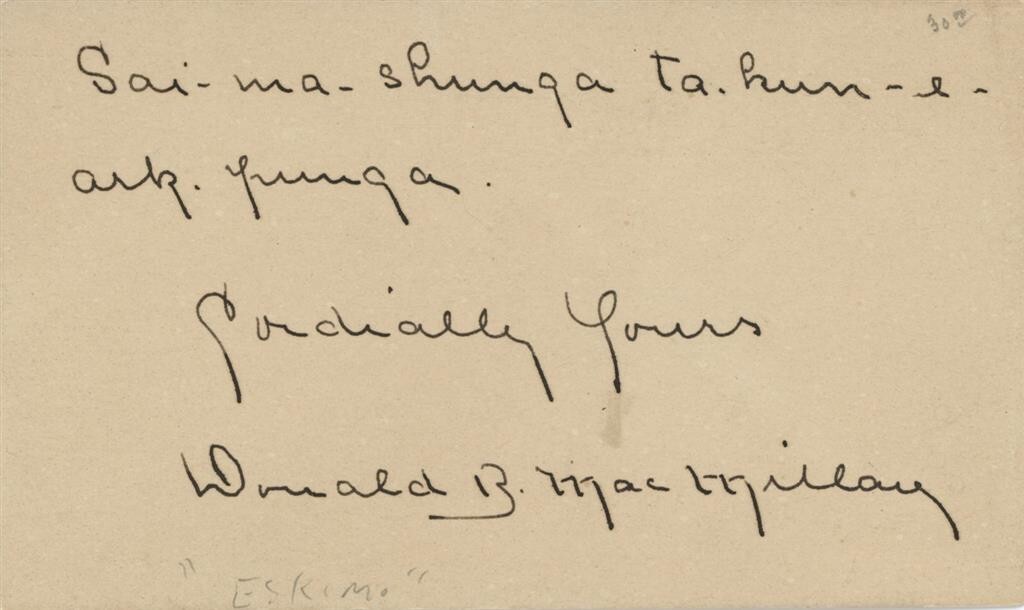 30.00
Sai-ma-shunga ta.kun-e-
ark. punga.
Cordially Yours
Donald B. MacMillan
"ESKIMO"